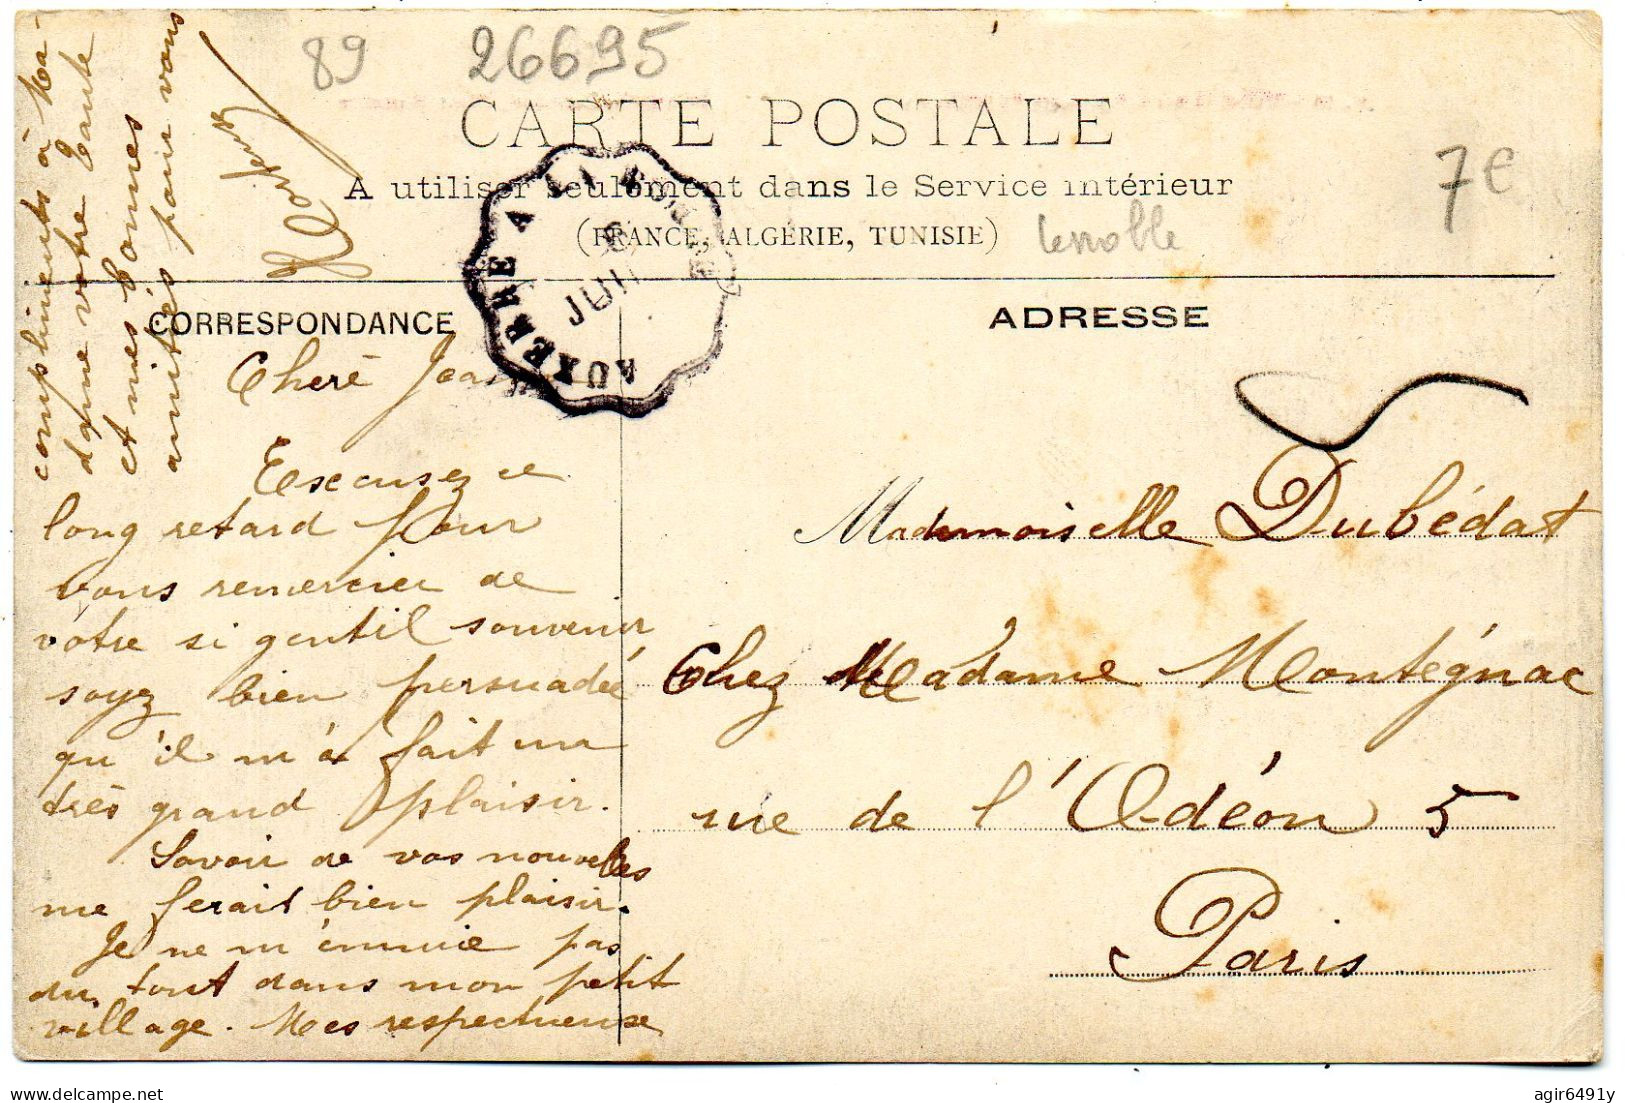 89 26695
CARTE POSTALE
A utiliser seulement dans le Service intérieur
(FRANCE, ALGÉRIE, TUNISIE)
7€
CORRESPONDANCE
ADRESSE
AUXERRE A
JUIN
Cheré Jeanne
Escusez ce
long retard pour
vous remercier de
votre si gentil souvenir
soyez bien persuadée
qu'il m'a fait un
très grand plaisir.
Savoir de vos nouvelles
me ferait bien plaisir.
Je ne m'ennuie pas
du tout dans mon petit
village. Mes respectueuse
compliments à Ma-
dame votre tante
et mes bonnes
amitiés pour vous
Mademoiselle Dubédat
Chez Madame Montégnac
rue de l'Odéon 5
Paris
delcampe.net
agir6491y